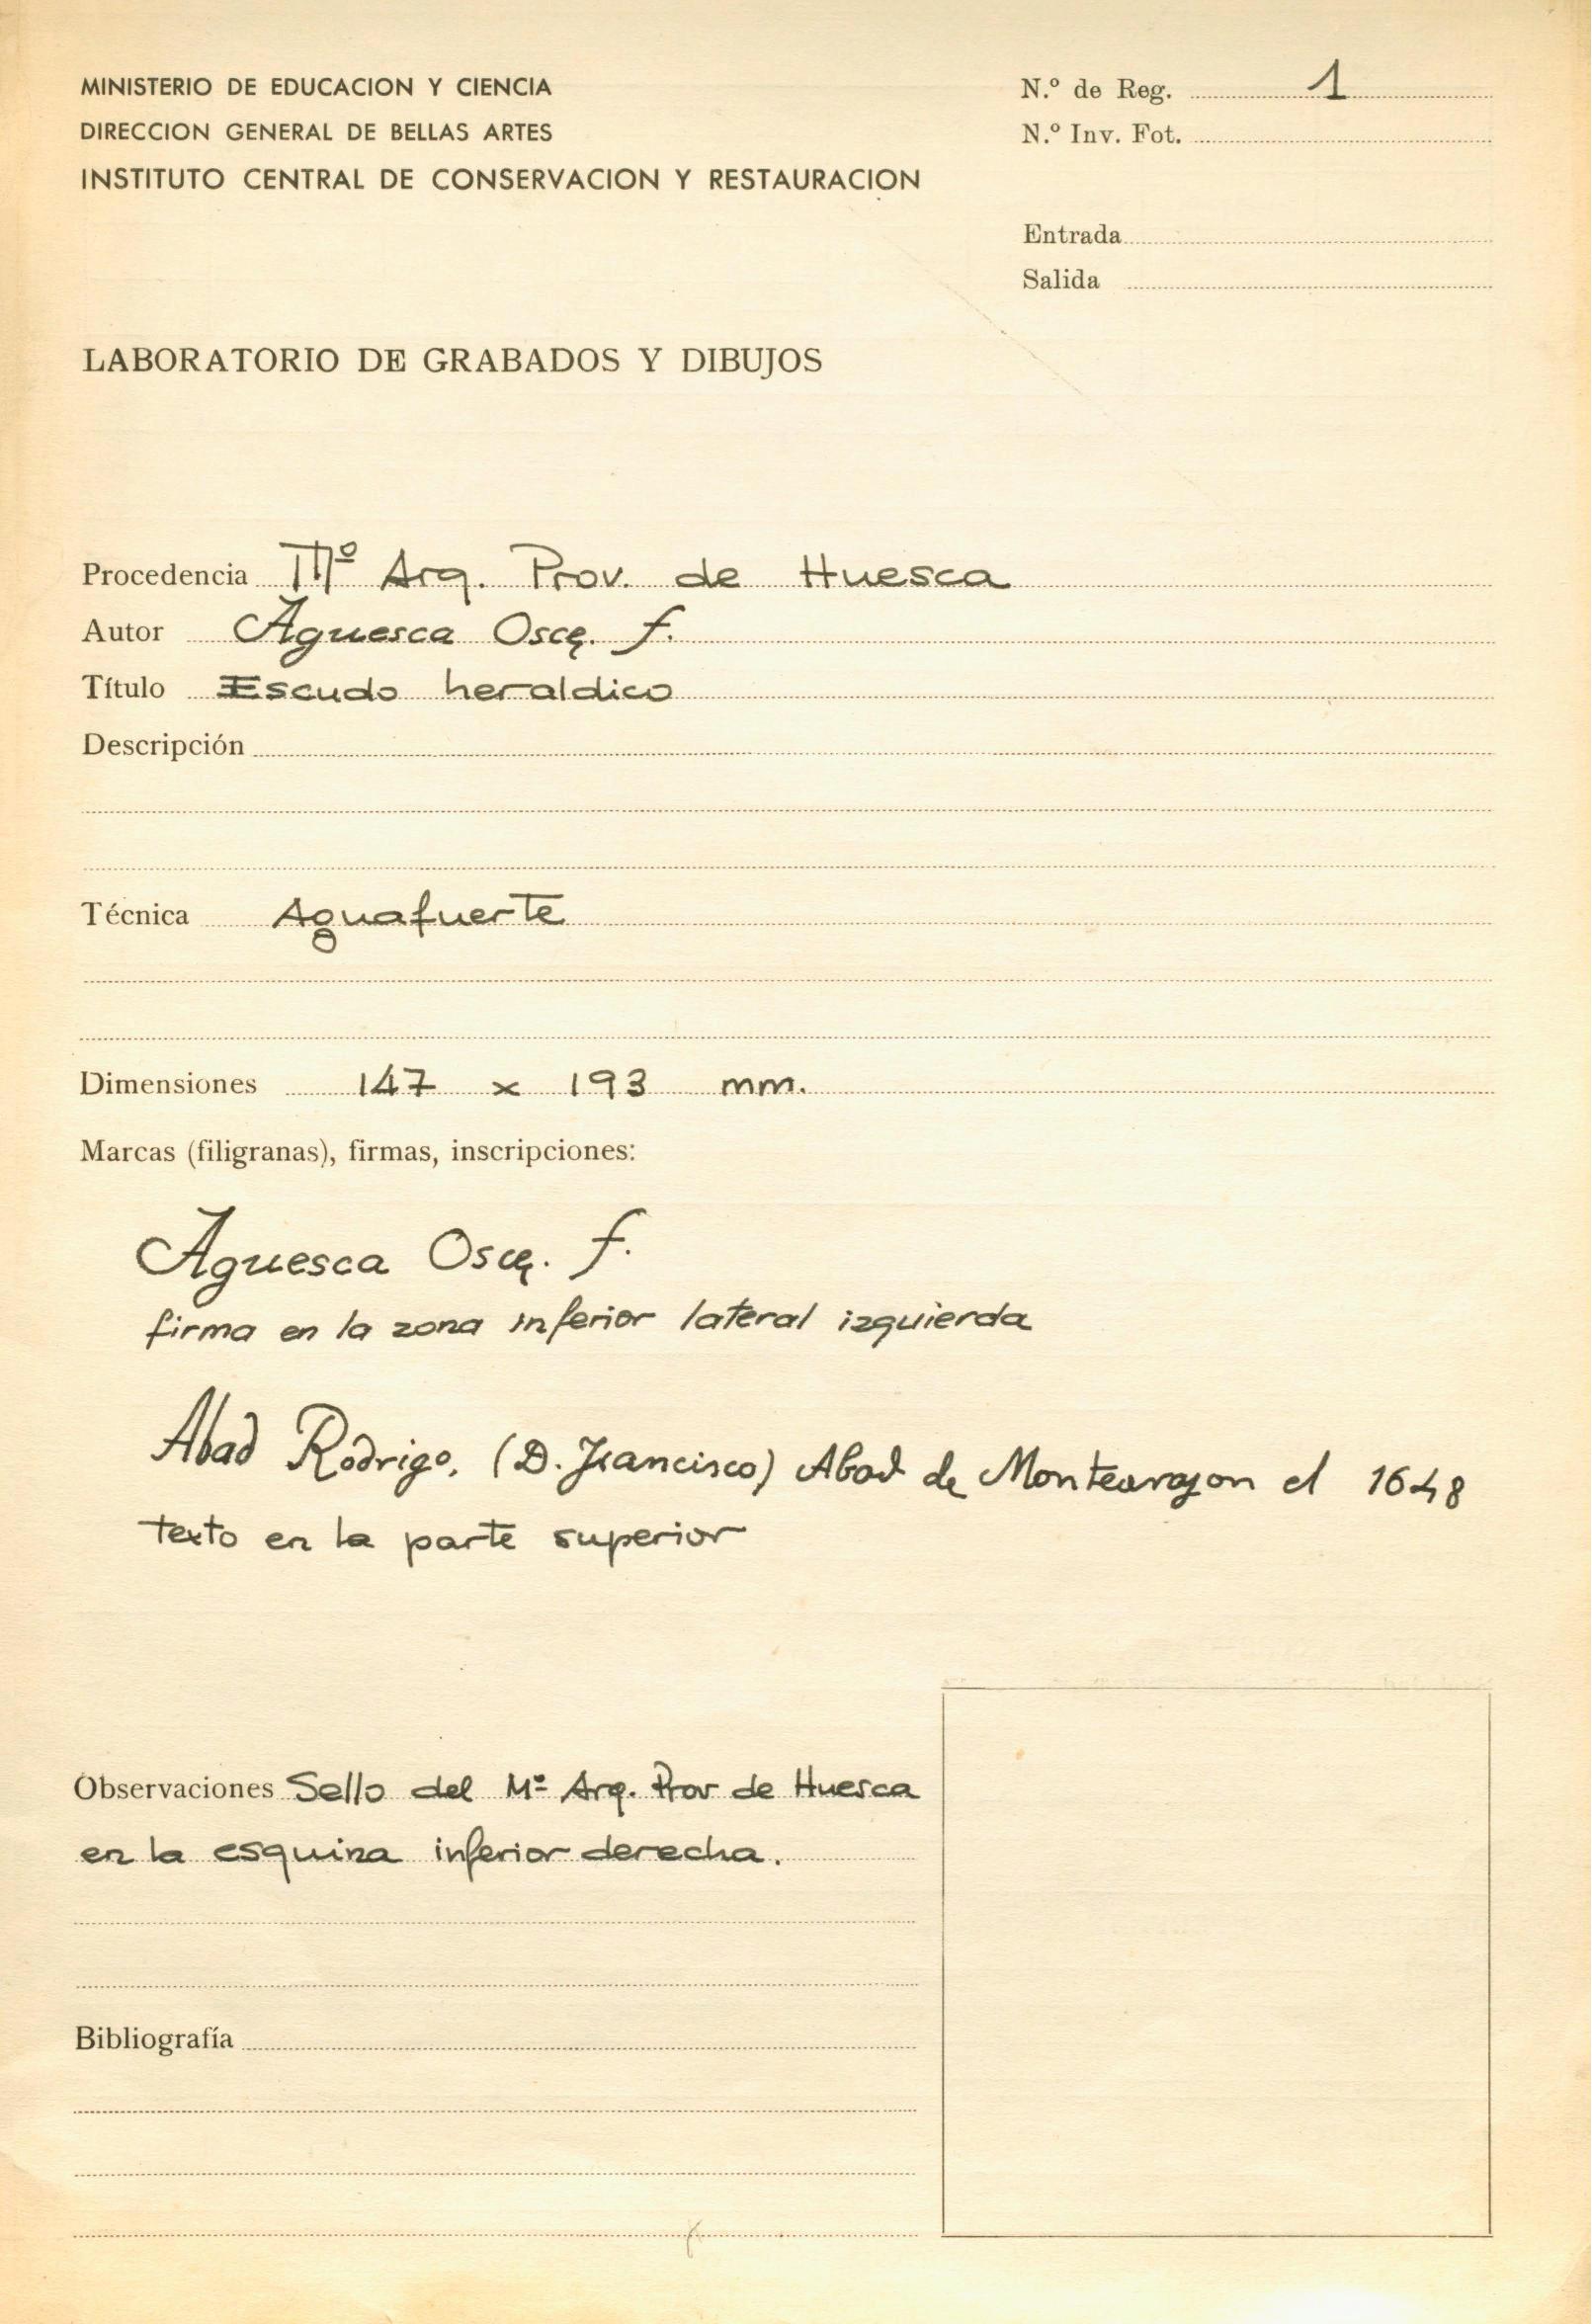 MINISTERIO DE EDUCACION Y CIENCIA
DIRECCION GENERAL DE BELLAS ARTES
INSTITUTO CENTRAL DE CONSERVACION Y RESTAURACION
N.º de Reg. 1
N.º Inv. Fot.
Entrada
Salida
LABORATORIO DE GRABADOS Y DIBUJOS
Procedencia Mº Arq. Prov. de Huesca
Autor Aguesca Oscę. f.
Título Escudo heraldico
Descripción
Técnica Aguafuerte
Dimensiones 147 x 193 mm.
Marcas (filigranas), firmas, inscripciones:
Aguesca Oscę. f.
firma en la zona inferior lateral izquierda
Abad Rodrigo, (D. Francisco) Abad de Montearagon el 1648
texto en la parte superior
Observaciones Sello del Mº Arq. Prov de Huesca
en la esquina inferior derecha.
Bibliografía